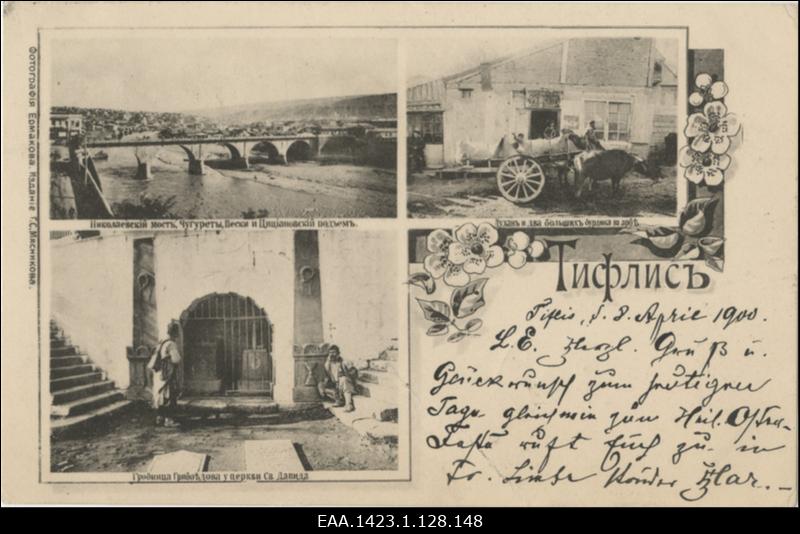 Фотографія Ермакова. Изданіе Г.С. Мясникова.
Николаевскій мостъ, Чугуреты, Пески и Циціановскій подъемъ.
Духанъ и два большихъ бурдюка на арбѣ.
Тифлисъ
Гробница Грибоѣдова у церкви Св. Давида
Tiflis, d. 8. April 1900.
L. E. Herzl. Gruß u.
Glückwunsch zum heutigen
Tage gleichwie zum Heil. Oster-
Feste ruft Euch zu in
Tr. Liebe
EAA.1423.1.128.148